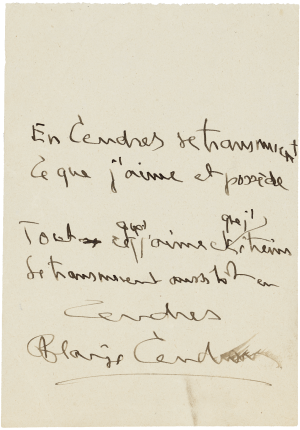 En Cendres se transmuent
Ce que j'aime et possède
Tout ce que j'aime et que j'étreins
Se transmuent aussitôt en
Cendres
Blaise Cendrars